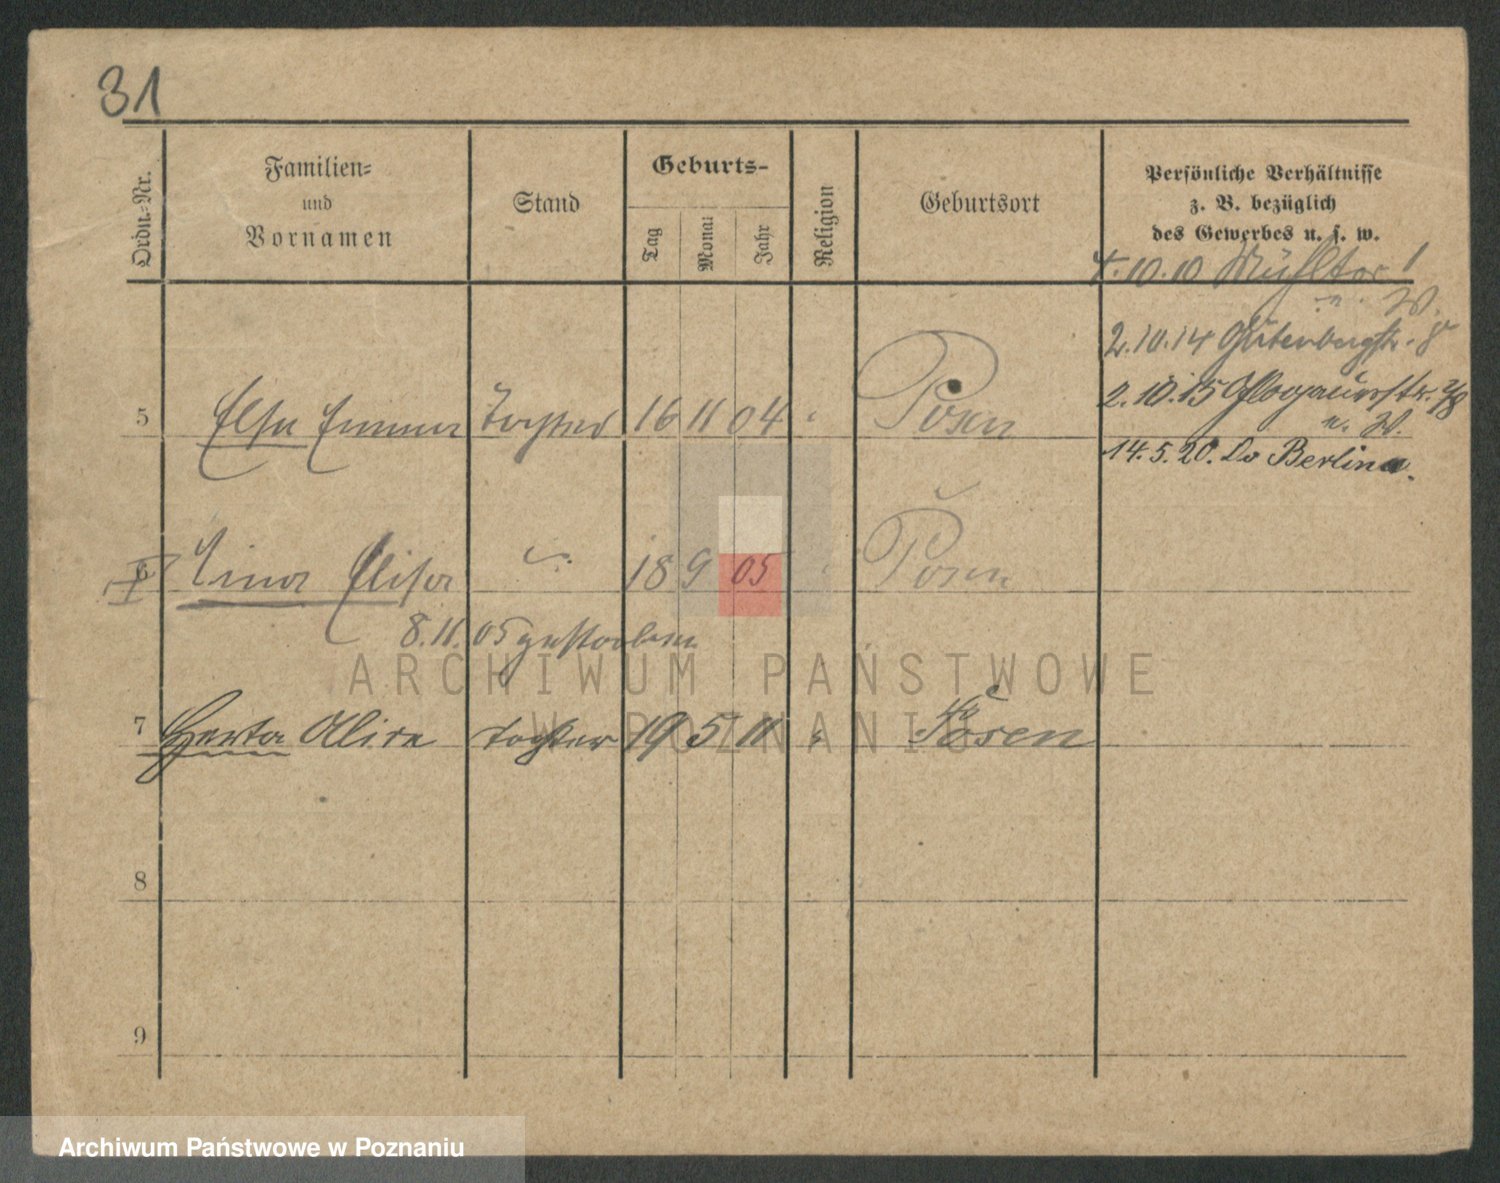 31
Ordn.-Nr.
Familien-
und
Vornamen
Stand
Geburts-
Tag
Monat
Jahr
Religion
Geburtsort
Persönliche Verhältnisse
z. B. bezüglich
des Gewerbes u. s. w.
4.10.10 Mühlstr
2.10.14 Gutenbergstr. 8
2.10.15 Glogauerstr.
5 Else Emma Tochter 16 11 04 Posen
14.5.20. Berlin
6 Elisa 18 9 05 Posen
8.11.05 gestorben
7 Herta Alice Tochter 19 5 11 Posen
8
9
ARCHIWUM PAŃSTWOWE
W POZNANIU
Archiwum Państwowe w Poznaniu